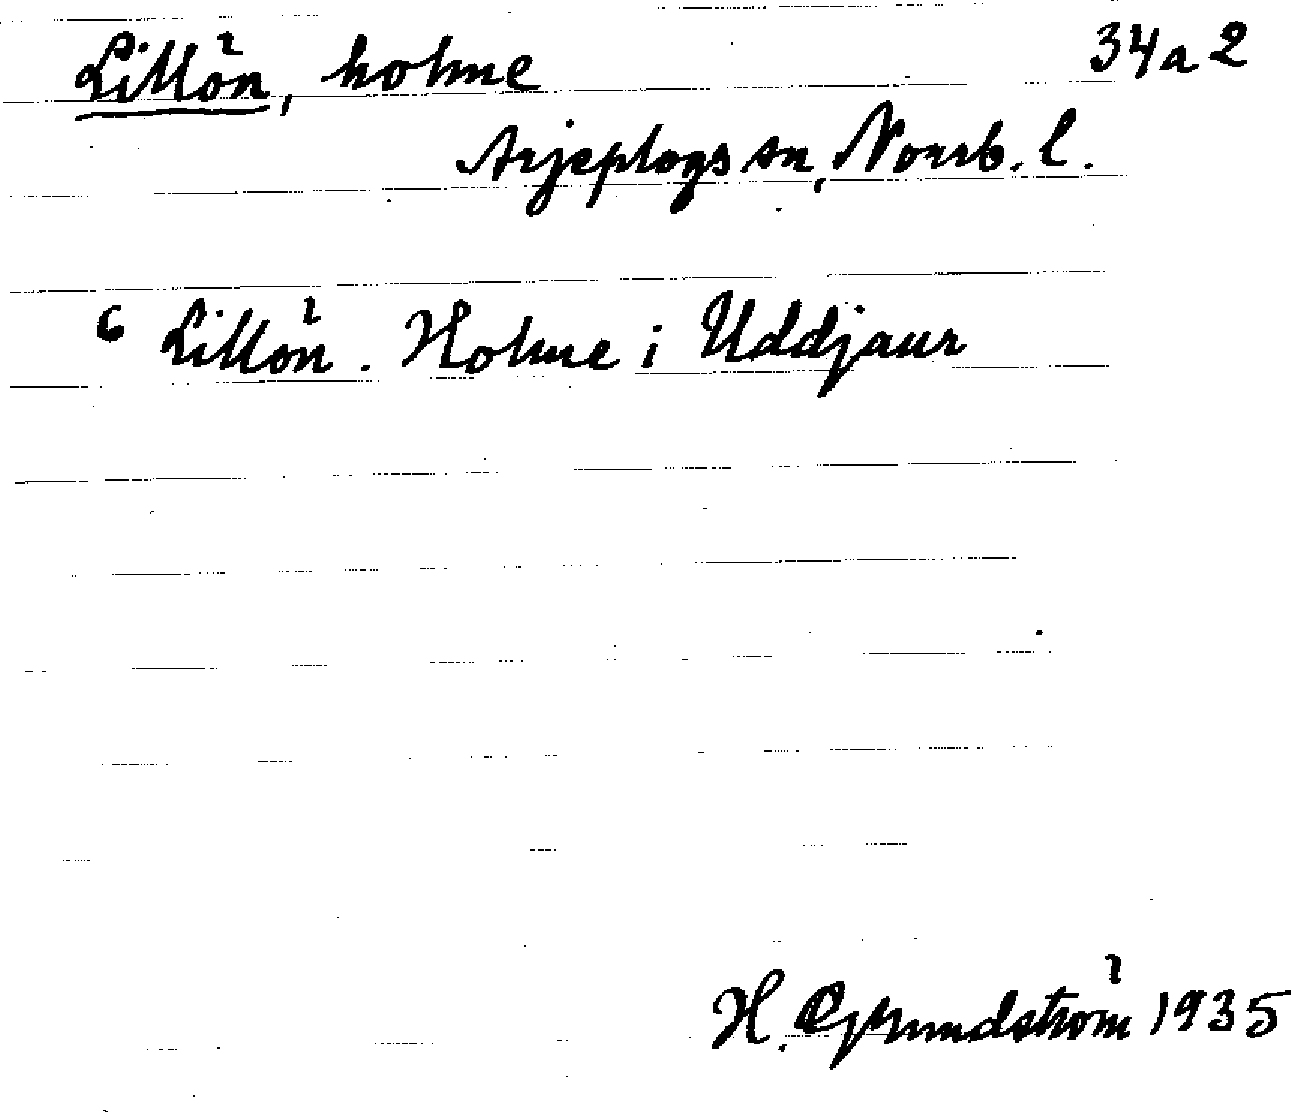 Lillön, holme 34a2
Arjeplogs sn, Norrb. l.
6 Lillön. Holme i Uddjaur
H. Grundström 1935